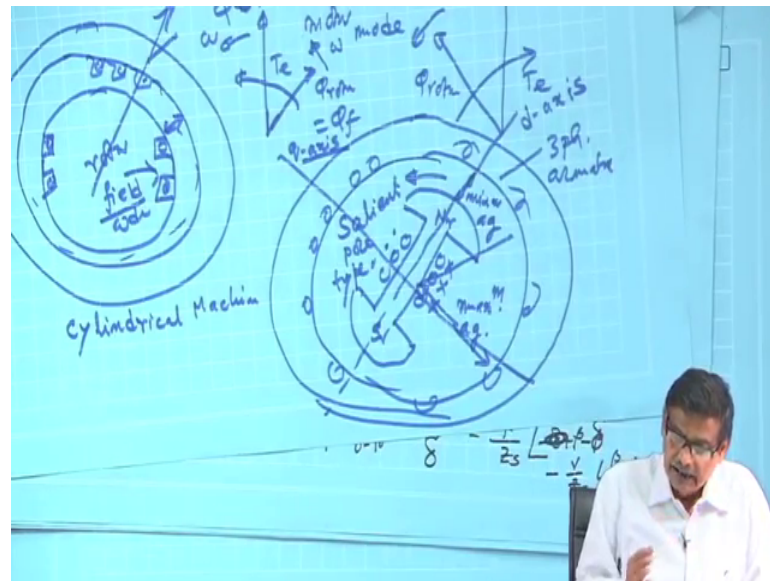 ω
Te
φrotor
= φf
q-axis
motor
mode
φrotor
Te
d-axis
3 ph.
armature
rotor
field
wdg
Cylindrical Machine
Salient
pole
type
Nr
Sr
min
ag
max^m
ag.
δ